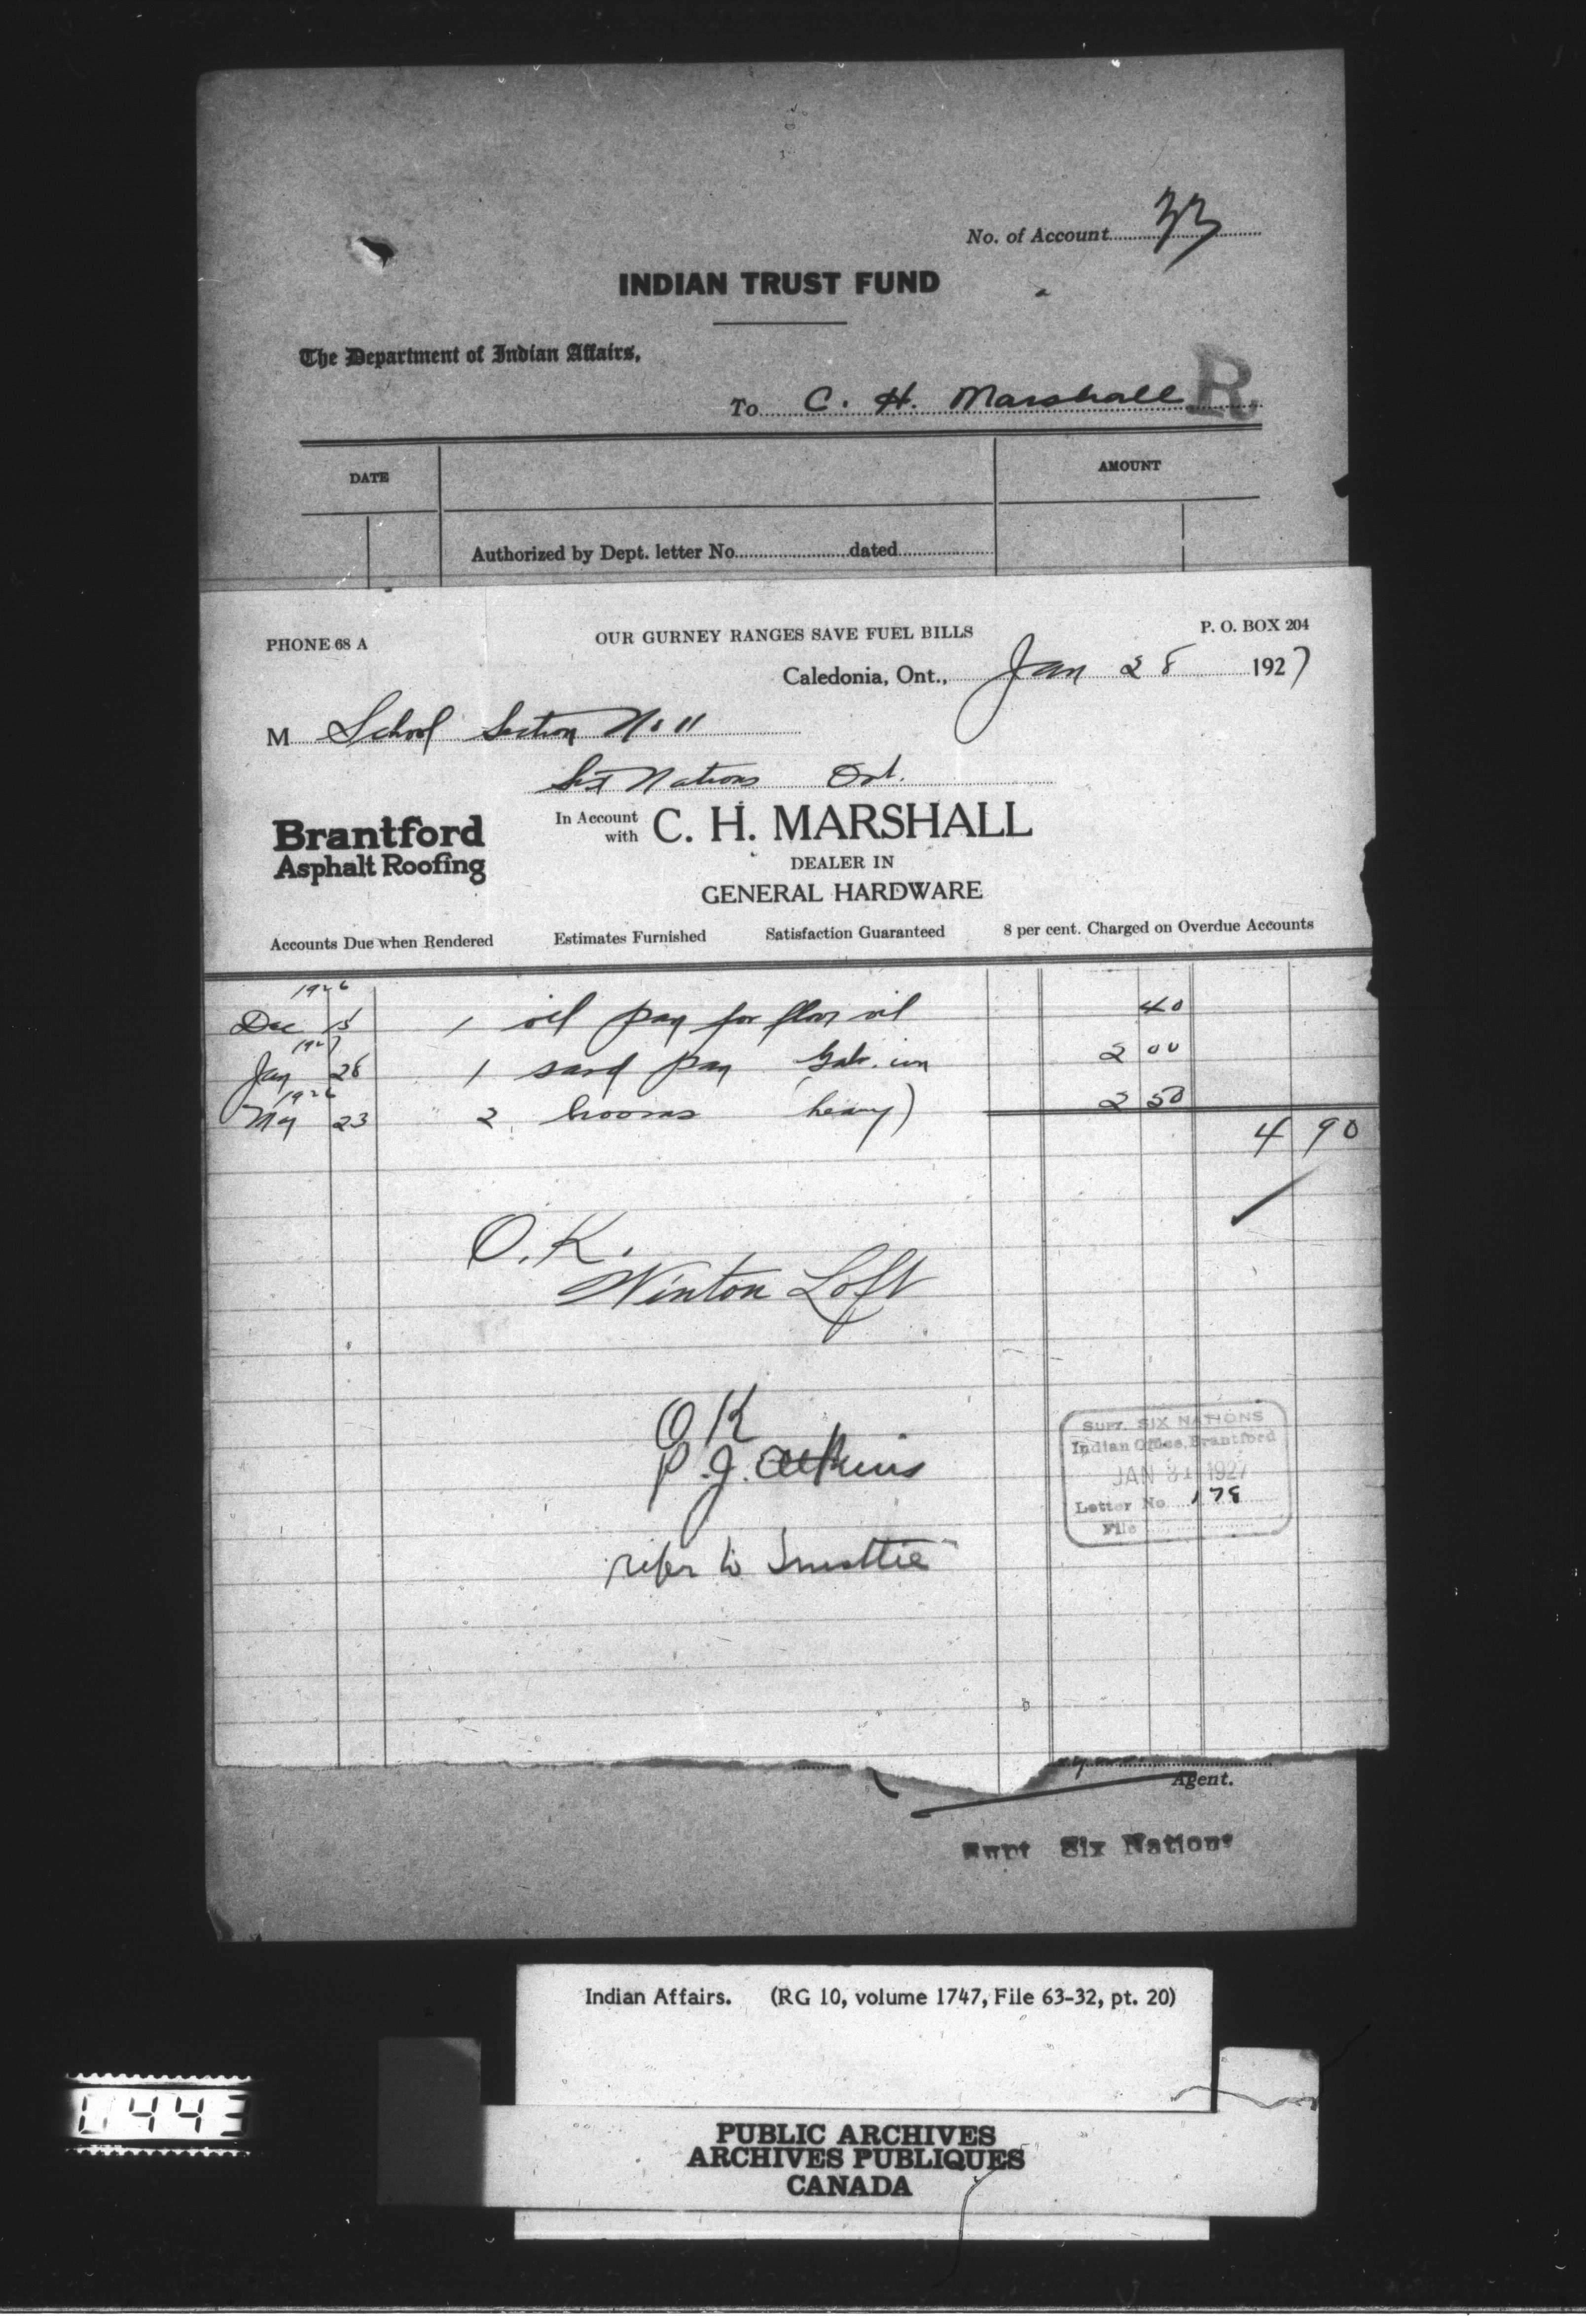 No. of Account 33
INDIAN TRUST FUND
The Department of Indian Affairs,
To C. H. Marshall R
DATE AMOUNT
Authorized by Dept. letter No. dated
PHONE 68 A OUR GURNEY RANGES SAVE FUEL BILLS P. O. BOX 204
Caledonia, Ont., Jan 28 1927
M School Section No 11
Six Nations Ont.
Brantford
Asphalt Roofing
In Account with C. H. MARSHALL
DEALER IN
GENERAL HARDWARE
Accounts Due when Rendered Estimates Furnished Satisfaction Guaranteed 8 per cent. Charged on Overdue Accounts
1926
Dec 15 1 oil pan for floor oil 40
1927
Jan 28 1 sand pan Galv. iron 2 00
1926
23 2 brooms (heavy) 2 50
4 90
O.K.
Winton Loft
OK
P.J. Atkins
refer to
SUPT. SIX NATIONS
Indian Office, Brantford
JAN 31 1927
Letter No. 178
File
Agent.
Supt Six Nations
Indian Affairs. (RG 10, volume 1747, File 63-32, pt. 20)
0443
PUBLIC ARCHIVES
ARCHIVES PUBLIQUES
CANADA